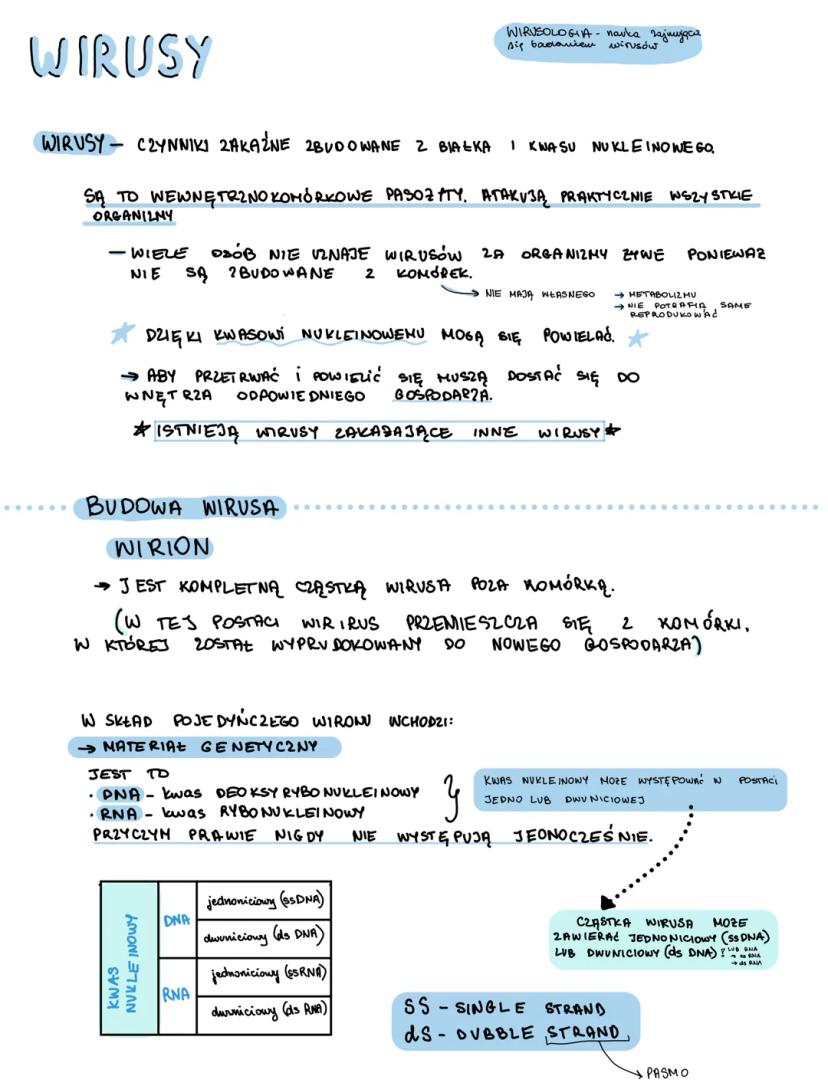 WIRUSY
WIRUSOLOGIA - nauka zajmująca
się badaniem wirusów
WIRUSY – CZYNNIKI ZAKAŹNE ZBUDOWANE Z BIAŁKA I KWASU NUKLEINOWEGO.
SĄ TO WEWNĘTRZNOKOMÓRKOWE PASOŻYTY. ATAKUJĄ PRAKTYCZNIE WSZYSTKIE
ORGANIZMY
– WIELE OSÓB NIE UZNAJE WIRUSÓW ZA ORGANIZMY ŻYWE PONIEWAŻ
NIE SĄ ZBUDOWANE Z KOMÓREK.
→ NIE MAJĄ WŁASNEGO → METABOLIZMU
→ NIE POTRAFIĄ SAME
REPRODUKOWAĆ
★ DZIĘKI KWASOWI NUKLEINOWEMU MOGĄ SIĘ POWIELAĆ. ★
→ ABY PRZETRWAĆ i POWIELIĆ SIĘ MUSZĄ DOSTAĆ SIĘ DO
WNĘTRZA ODPOWIEDNIEGO GOSPODARZA.
★ ISTNIEJĄ WIRUSY ZAKAŻAJĄCE INNE WIRUSY ★
BUDOWA WIRUSA
WIRION
→ JEST KOMPLETNĄ CZĄSTKĄ WIRUSA POZA KOMÓRKĄ.
(W TEJ POSTACI WIRIRUS PRZEMIESZCZA SIĘ Z KOMÓRKI,
W KTÓREJ ZOSTAŁ WYPRUDOKOWANY DO NOWEGO GOSPODARZA)
W SKŁAD POJEDYŃCZEGO WIRONU WCHODZI:
→ MATERIAŁ GENETYCZNY
JEST TO
· DNA - kwas DEOKSYRYBONUKLEINOWY
· RNA - kwas RYBONUKLEINOWY
PRZYCZYM PRAWIE NIGDY NIE WYSTĘPUJĄ JEDNOCZEŚNIE.
KWAS NUKLEINOWY MOŻE WYSTĘPOWAĆ W POSTACI
JEDNO LUB DWUNICIOWEJ
KWAS
NUKLEINOWY
DNA
jednoniciowy (ssDNA)
dwuniciowy (ds DNA)
RNA
jednoniciowy (ssRNA)
dwuniciowy (ds RNA)
CZĄSTKA WIRUSA MOŻE
ZAWIERAĆ JEDNONICIOWY (ssDNA)
LUB DWUNICIOWY (ds DNA) LUB RNA
→ ss RNA
→ ds RNA
SS - SINGLE STRAND
dS - DUBBLE STRAND
→ PASMO